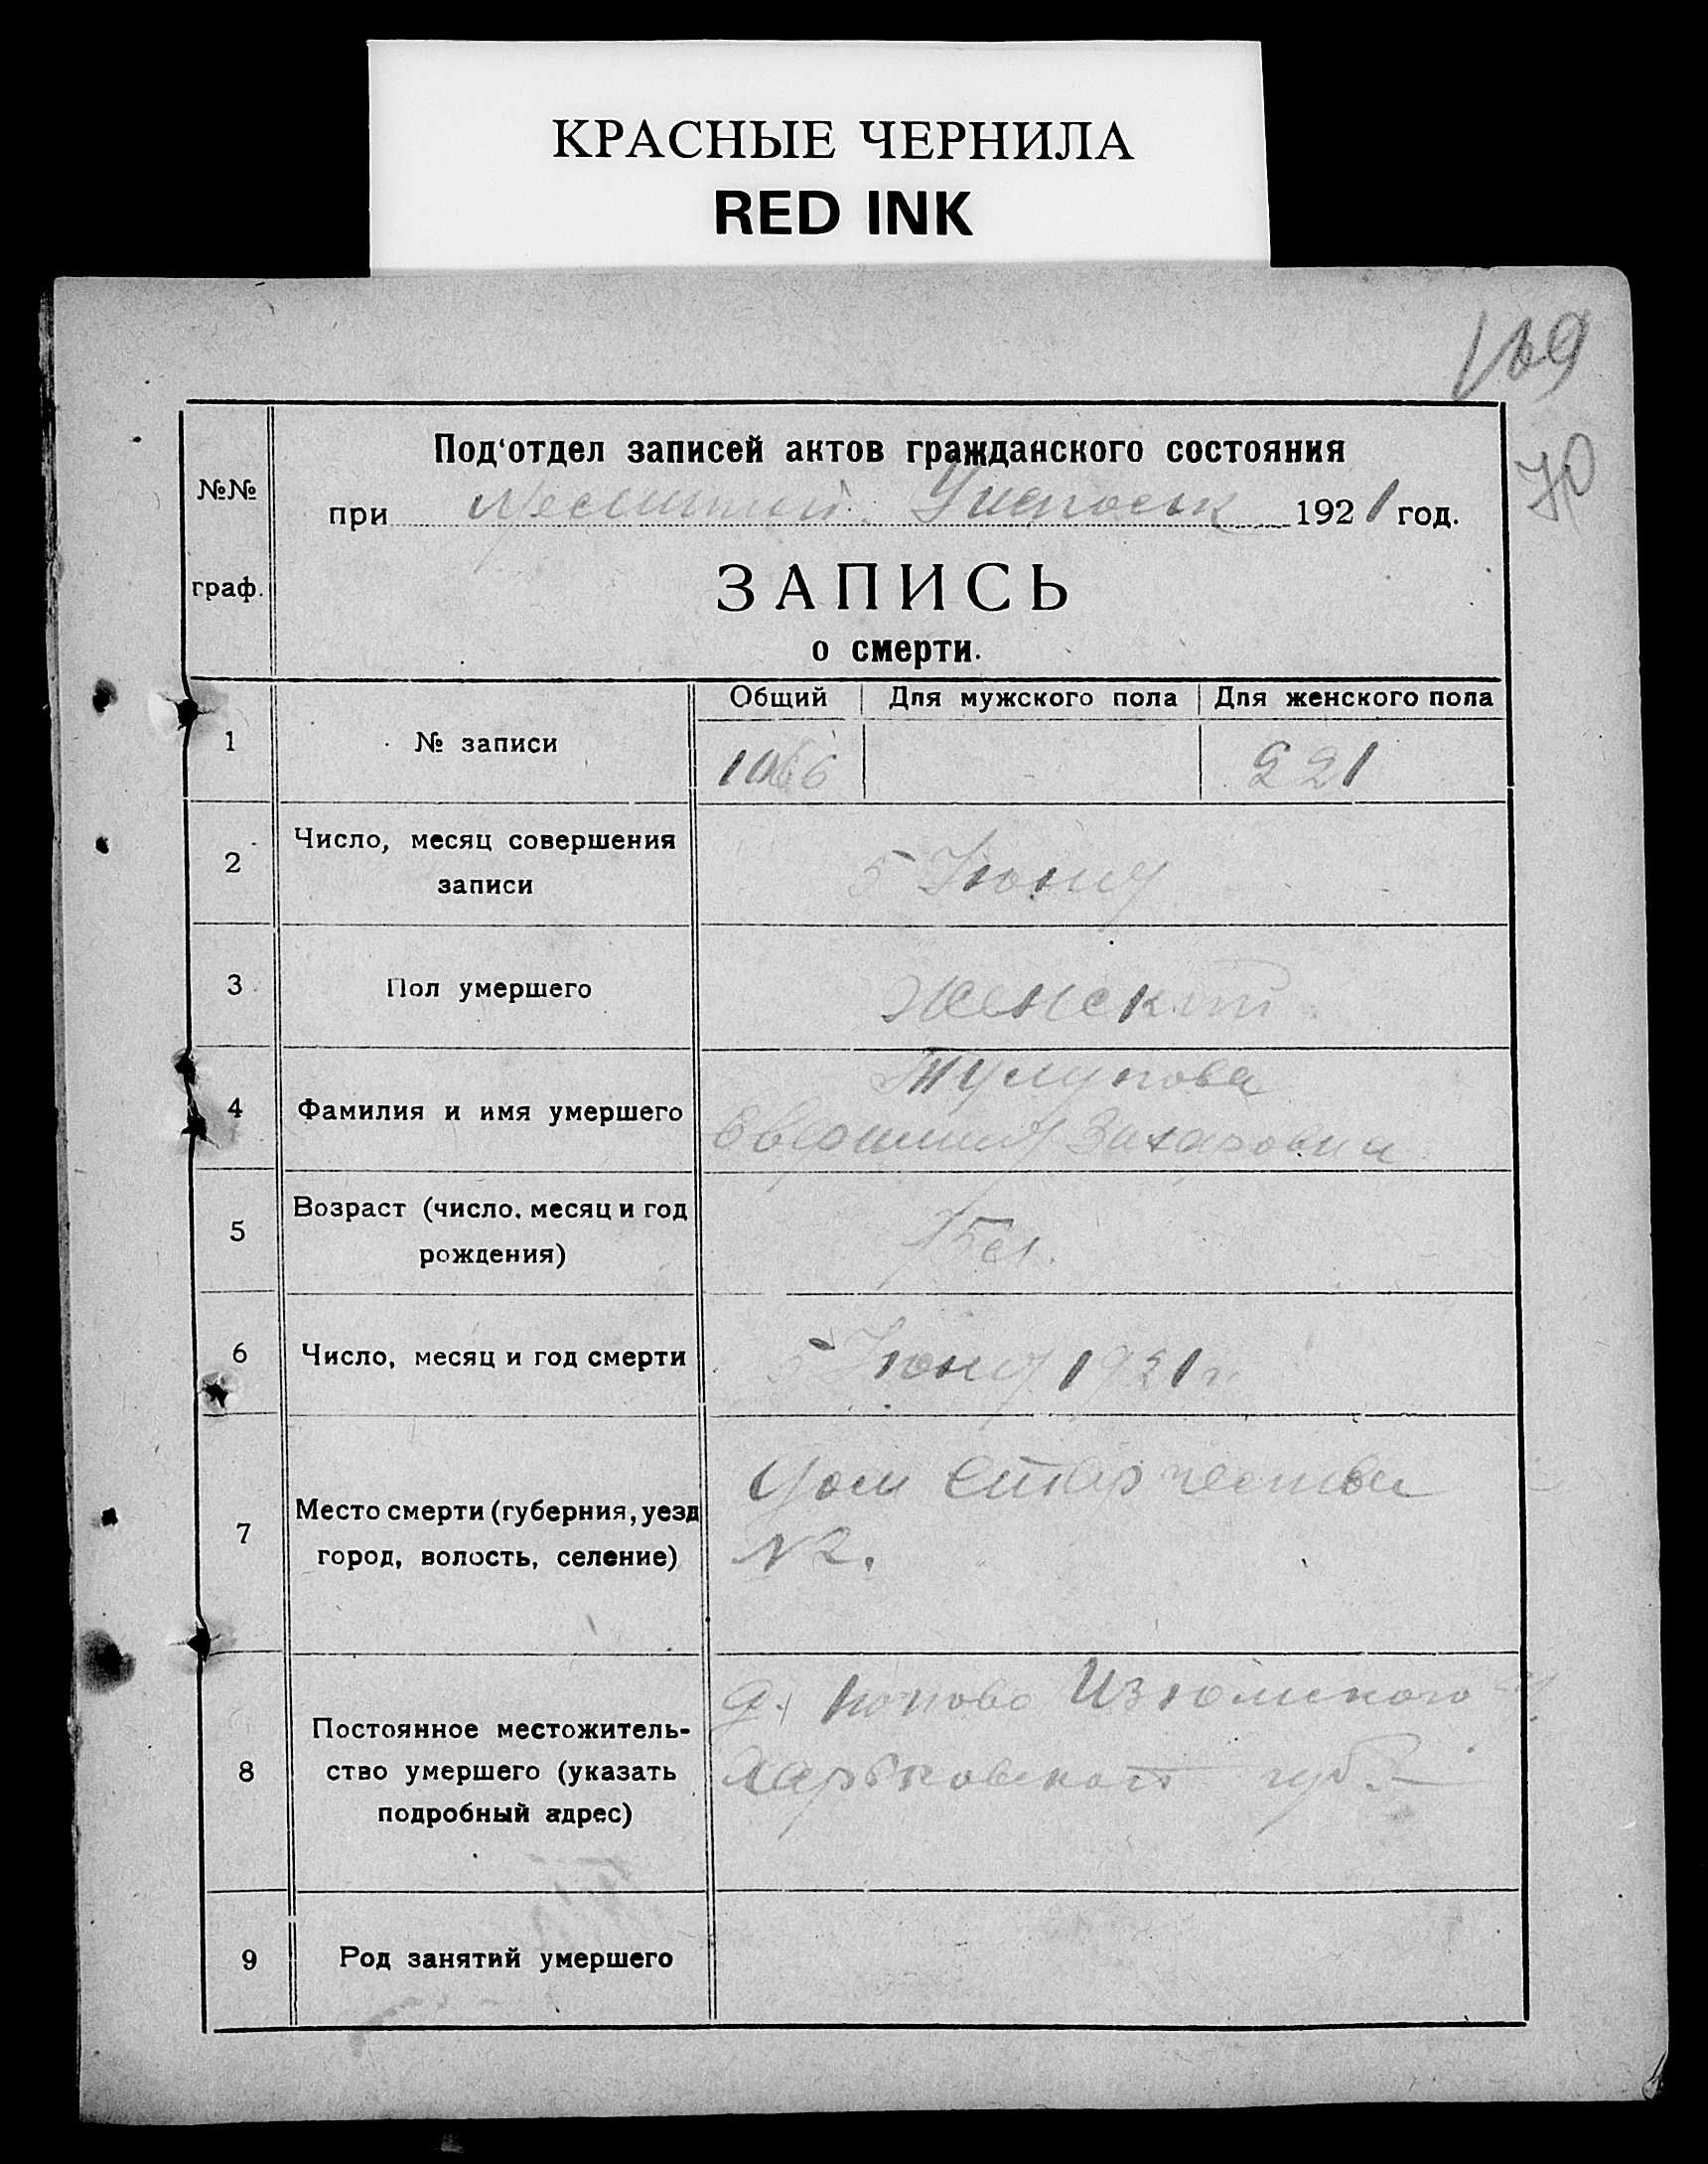 КРАСНЫЕ ЧЕРНИЛА
RED INK
70
№№ граф.
Под'отдел записей актов гражданского состояния
при 1921 год.
ЗАПИСЬ
о смерти.
Общий Для мужского пола Для женского пола
1 № записи 1066 221
2 Число, месяц совершения
записи
5 Июня
3 Пол умершего Женский
4 Фамилия и имя умершего
Тулупова
Захаровна
5 Возраст (число, месяц и год
рождения)
6 Число, месяц и год смерти 5 Июня 1921 г.
7 Место смерти (губерния, уезд
город, волость, селение)
Дом Старчества
N2.
8 Постоянное местожитель-
ство умершего (указать
подробный адрес)
д. Попово Изюмского у.
Харьковской губ.
9 Род занятий умершего